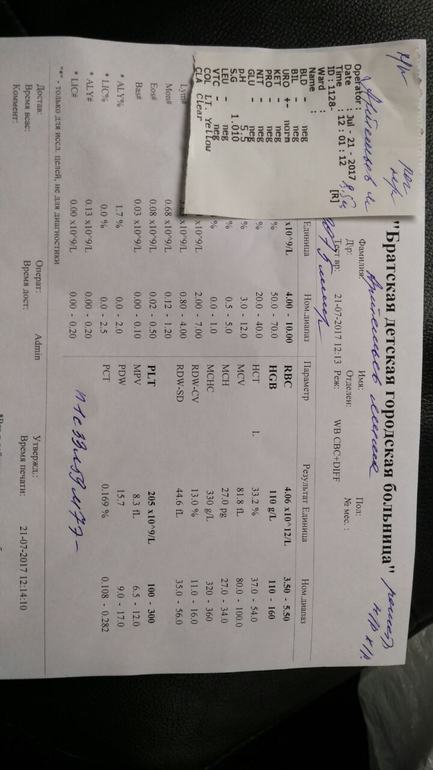 "Братская детская городская больница"
Фамилия:
Имя:
Пол:
Д/р:
Отделен:
№ мес. :
Тест вр: 21-07-2017 12:13 Реж: WB CBC+DIFF
Operator :
Date : Jul - 21 - 2017
Time : 12 : 01 : 12
ID : 1128- [R]
Ward :
Name :
BLD - neg
BIL - neg
URO +- norm
KET - neg
PRO - neg
NIT - neg
GLU - neg
pH 5.5
S.G 1.010
LEU - neg
VTC - neg
COL LT. Yellow
CLA Clear
Единица Ном.диапаз Параметр Результат Единица Ном.диапаз
x10^9/L 4.00 - 10.00 RBC 4.06 x10^12/L 3.50 - 5.50
% 50.0 - 70.0 HGB 110 g/L 110 - 160
% 20.0 - 40.0 HCT L 33.2 % 37.0 - 54.0
% 3.0 - 12.0 MCV 81.8 fL 80.0 - 100.0
% 0.5 - 5.0 MCH 27.0 pg 27.0 - 34.0
% 0.0 - 1.0 MCHC 330 g/L 320 - 360
x10^9/L 2.00 - 7.00 RDW-CV 13.0 % 11.0 - 16.0
Lym# x10^9/L 0.80 - 4.00 RDW-SD 44.6 fL 35.0 - 56.0
Mon# 0.68 x10^9/L 0.12 - 1.20
Eos# 0.08 x10^9/L 0.02 - 0.50 PLT 205 x10^9/L 100 - 300
Bas# 0.03 x10^9/L 0.00 - 0.10 MPV 8.3 fL 6.5 - 12.0
* ALY% 1.7 % 0.0 - 2.0 PDW 15.7 9.0 - 17.0
* LIC% 0.0 % 0.0 - 2.5 PCT 0.169 % 0.108 - 0.282
* ALY# 0.13 x10^9/L 0.00 - 0.20
* LIC# 0.00 x10^9/L 0.00 - 0.20
"*" - только для иссл. целей, не для диагностики
Достав: Оператор: Admin Утвержд.:
Время взяс: Время дост: Время печати: 21-07-2017 12:14:10
Коммент: